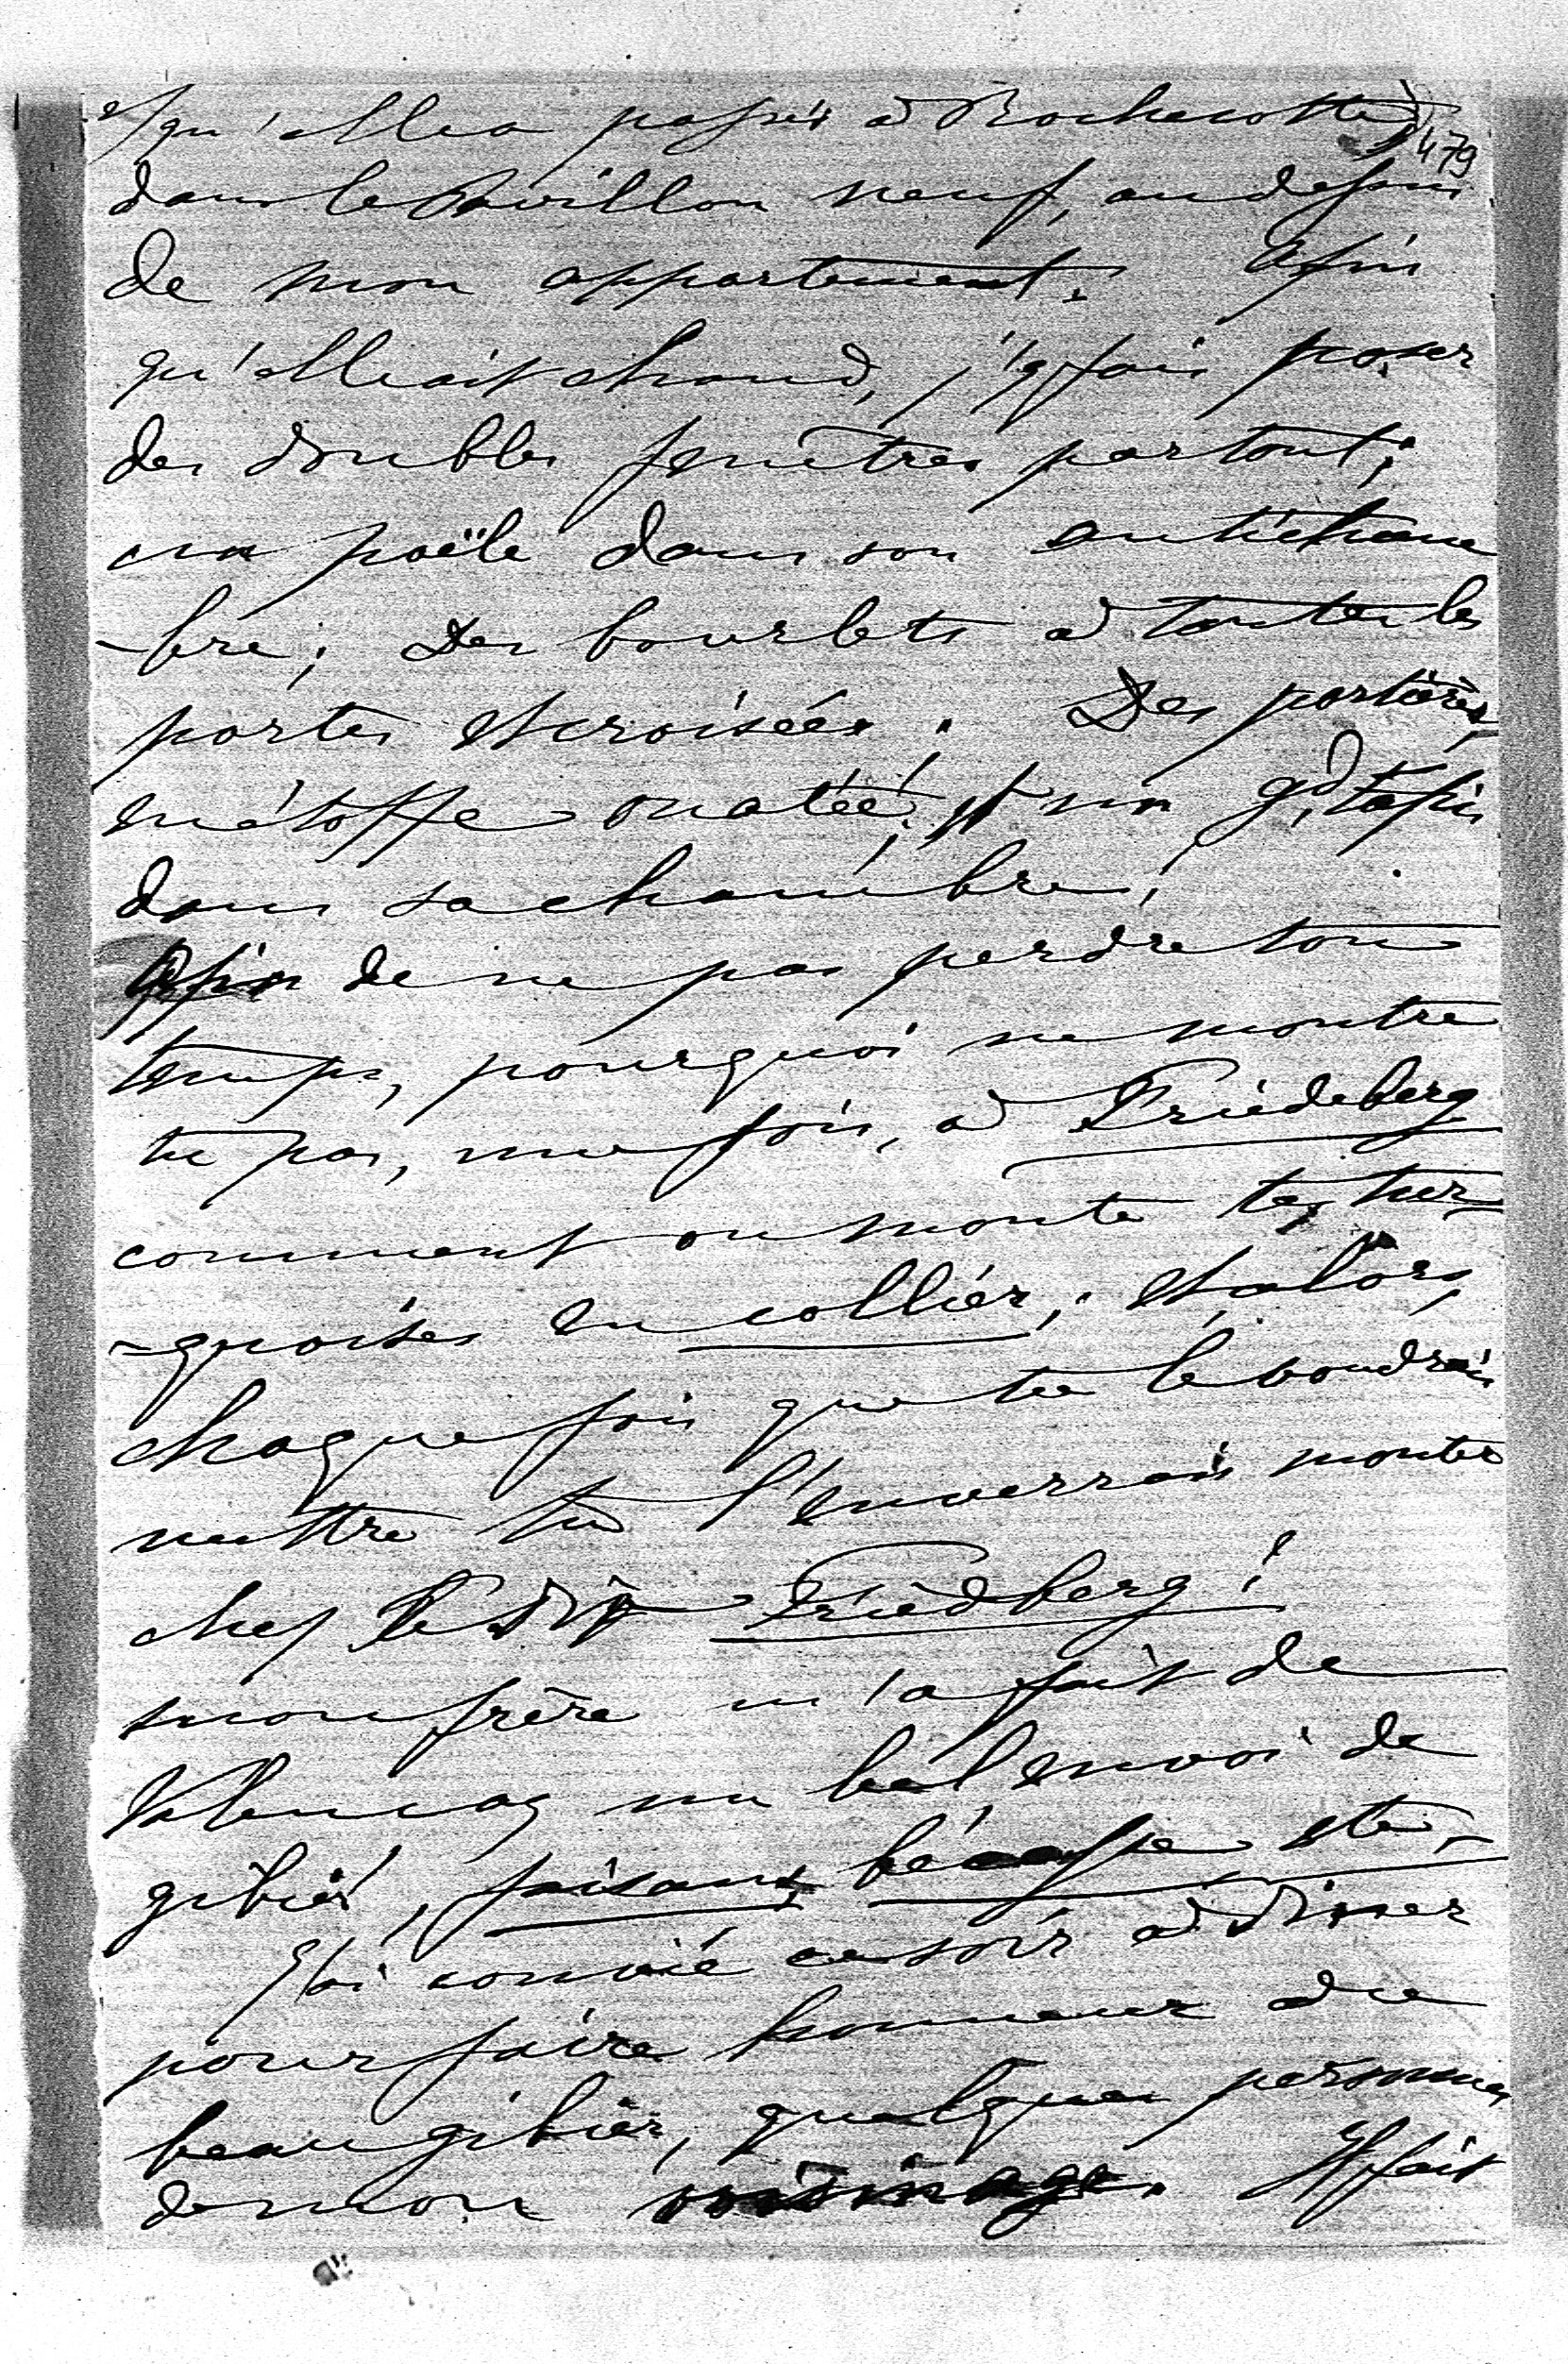 qu'elle a passés à Rochecotte
479
dans le Pavillon neuf, au dessus
de mon appartement. Afin
qu'elle ait chaud, j'y fais poser
des doubles fenêtres partout;
un poële dans son anticham
-bre; Des bourlets à toutes les
portes et croisées. Des portières,
en étoffe ouatée; et un gd. tapis
dans sa chambre!
Afin de ne pas perdre ton
temps, pourquoi ne montre
tu pas, une fois, à Friedeberg
comment on monte tes tur
-quoises en collier; et alors,
chaque fois que tu le voudrais
mettre tu l'enverrais monter
chez le dit Friedberg!
mon frère m'a fait de
Valençay un bel envoi de
gibier, faisans, bécasse etc,
J'ai convié ce soir à diner
pour faire honneur au
beau gibier, quelques personnes
de mon voisinage. Il fait